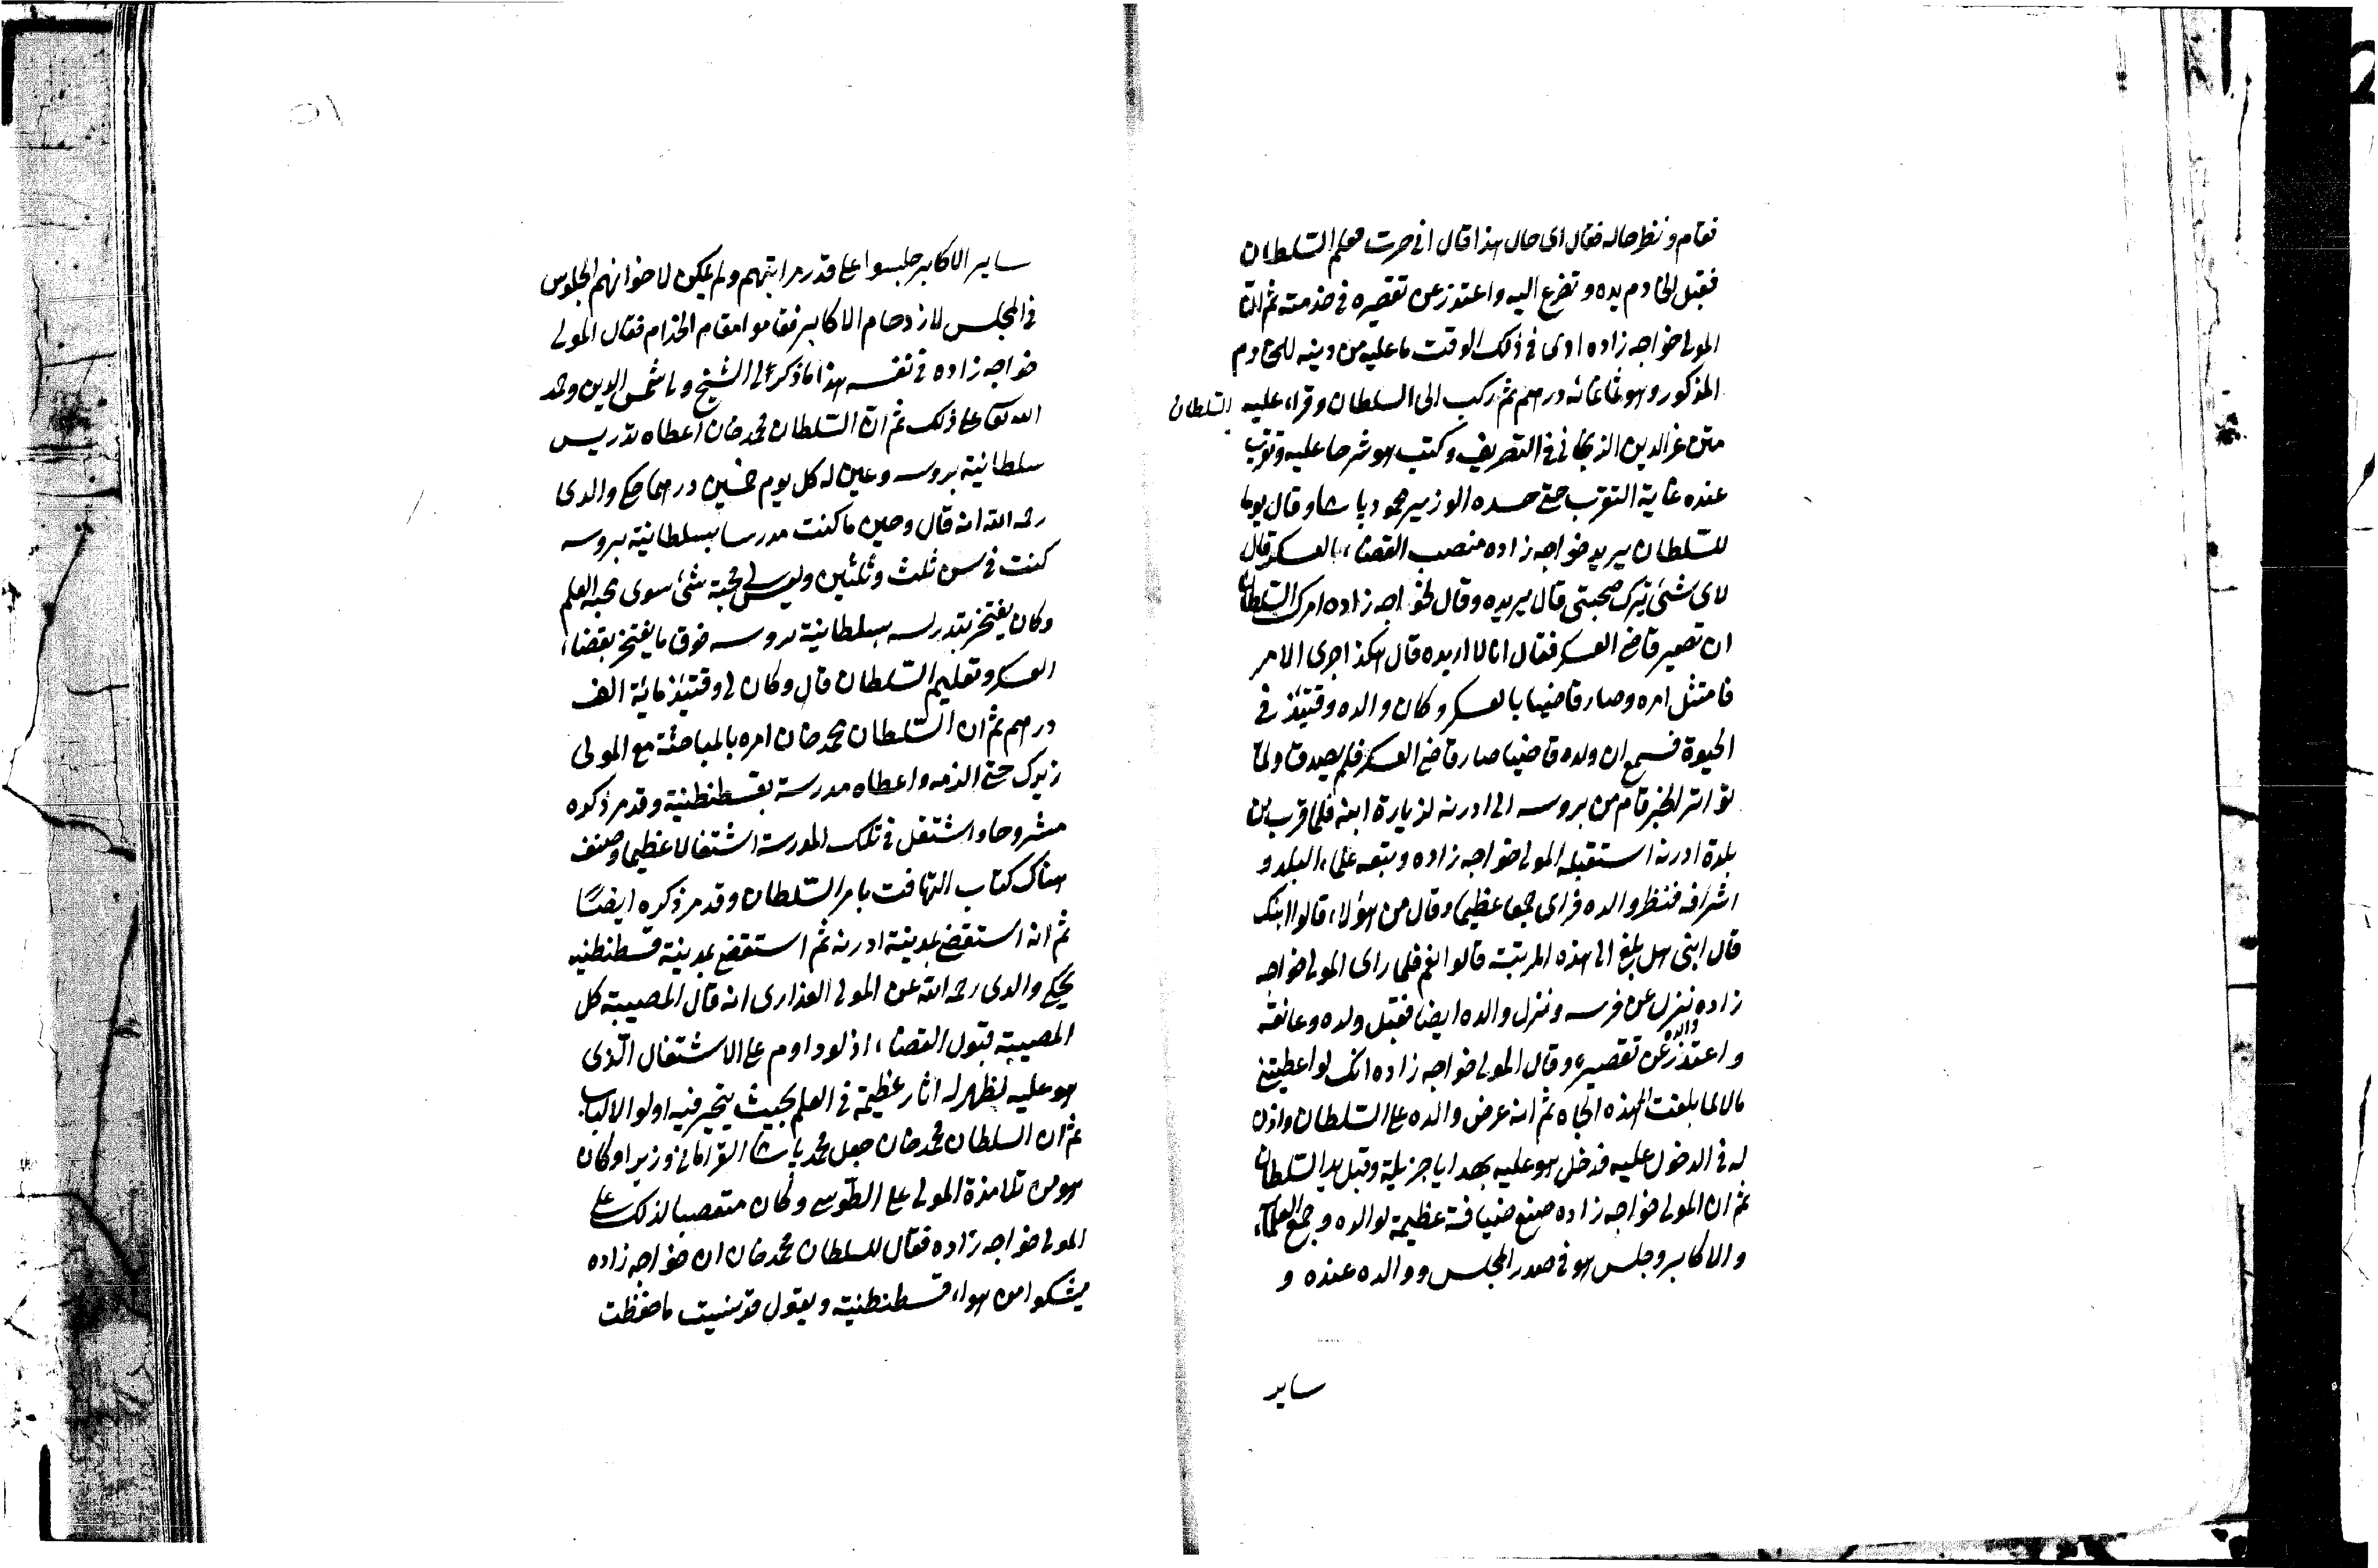 فقام ونظر حاله فقال اى حال هذا قال انى صرت معلم السلطان
فقبل الخادم يده وتضرع اليه واعتذر عن تقصيره فى خدمته ثم ان
المولى خواجه زاده ادى فى ذلك الوقت ما عليه من دينه للخادم
المذكور وهو ثمانمائه درهم ثم ركب الى السلطان وقراء عليه السلطان
متن عز الدين الزنجانى فى التصريف وكتب هو شرحا عليه وتقرب
عنده غاية التقرب حتى حسده الوزير محمود باشا وقال يوما
للسلطان يريد خواجه زاده منصب القضاء بالعسكر قال
لاى شئ يترك صحبتى قال يريده وقال لخواجه زاده امرك السلطان
ان تصير قاضى العسكر فقال انا لا اريده قال هكذا جرى الامر
فامتثل امره وصار قاضيا بالعسكر وكان والده وقتيئذ فى
الحيوة فسمع ان ولده قاضيا صار قاضى العسكر فلم يصدق ولما
تواتر الخبر قام من بروسه الى ادرنه لزيارة ابنه فلما قرب من
بلدة ادرنه استقبله المولى خواجه زاده وتبعه علماء البلد و
اشرافه فنظر والده فراى جمعا عظيما وقال من هؤلاء قالوا ابنك
قال ابنى هل بلغ الى هذه المرتبة قالوا نعم فلما راى المولى خواجه
زاده نزل عن فرسه ونزل والده ايضا فقبل ولده وعانقه
واعتذر والده عن تقصيره وقال المولى خواجه زاده انك لو اعطيتنى
مالا لما بلغت الى هذه الجاه ثم انه عرض والده على السلطان واذن
له فى الدخول عليه فدخل هو عليه بهدايا جزيلة وقبل يد السلطان
ثم ان المولى خواجه زاده صنع ضيافة عظيمة لوالده وجمع العلماء
والاكابر وجلس هو فى صدر المجلس ووالده عنده و
ساير
ساير الاكابر جلسوا على قدر مراتبهم ولم يمكن لاخوانهم الجلوس
فى المجلس لازدحام الاكابر فقاموا مقام الخدام فقال المولى
خواجه زاده فى نفسه هذا ما ذكره لى الشيخ ولى شمس الدين وحمد
الله تعالى على ذلك ثم ان السلطان محمد خان اعطاه تدريس
سلطانية بروسه وعين له كل يوم خمسين درهما حكى والدى
رحمه الله انه قال وحين ما كنت مدرسا بسلطانية بروسه
كنت فى سن ثلث وثلثين وليس لى محبة شئ سوى محبة العلم
وكان يفتخر بتدريسه بسلطانية بروسه فوق ما يفتخر بقضاء
العسكر وتعليم السلطان قال وكان لى وقتيئذ مائة الف
درهم ثم ان السلطان محمد خان امره بالمباحثة مع المولى
زيرك حتى الزمه واعطاه مدرسة بقسطنطنية وقد مر ذكره
مشروحا واشتغل فى تلك المدرسة اشتغالا عظيما وصنف
هناك كتاب التهافت بامر السلطان وقد مر ذكره ايضًا
ثم انه استقضى بمدينة ادرنه ثم استقضى بمدينة قسطنطنيه
يحكى والدى رحمه الله عن المولى العذارى انه قال المصيبة كل
المصيبة قبول القضاء اذ لو داوم على الاشتغال الذى
هو عليه لظهر له اثار عظيمة فى العلم بحيث يتحير فيه اولو الالباب
ثم ان السلطان محمد خان جعل محمد باشا القرامانى وزيرا وكان
هو من تلامذة المولى على الطوسى وكان متعصبا لذلك على
المولى خواجه زاده فقال للسلطان محمد خان ان خواجه زاده
يشكوا من هواء قسطنطنية ويقول قد نسيت ما حفظت